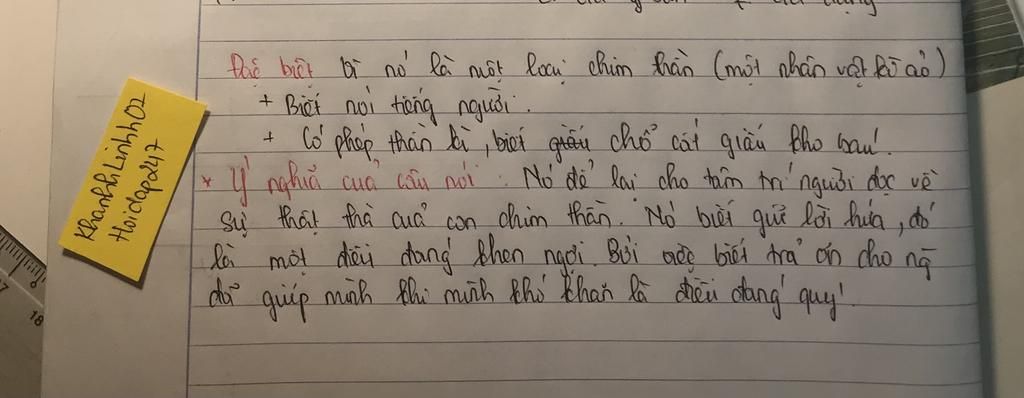 Đặc biệt vì nó là một loại chim thần (một nhân vật kì ảo)
+ Biết nói tiếng người.
+ Có phép thần kì, biết chỗ cất giấu kho báu!
* Ý nghĩa của câu nói: Nó để lại cho tâm trí người đọc về
sự thật thà của con chim thần. Nó biết giữ lời hứa, đó
là một điều đáng khen ngợi. Bởi việc biết trả ơn cho ng
đã giúp mình khi mình khó khăn là điều đáng quý!
KhanhhLinhh02
Hoidap247
18